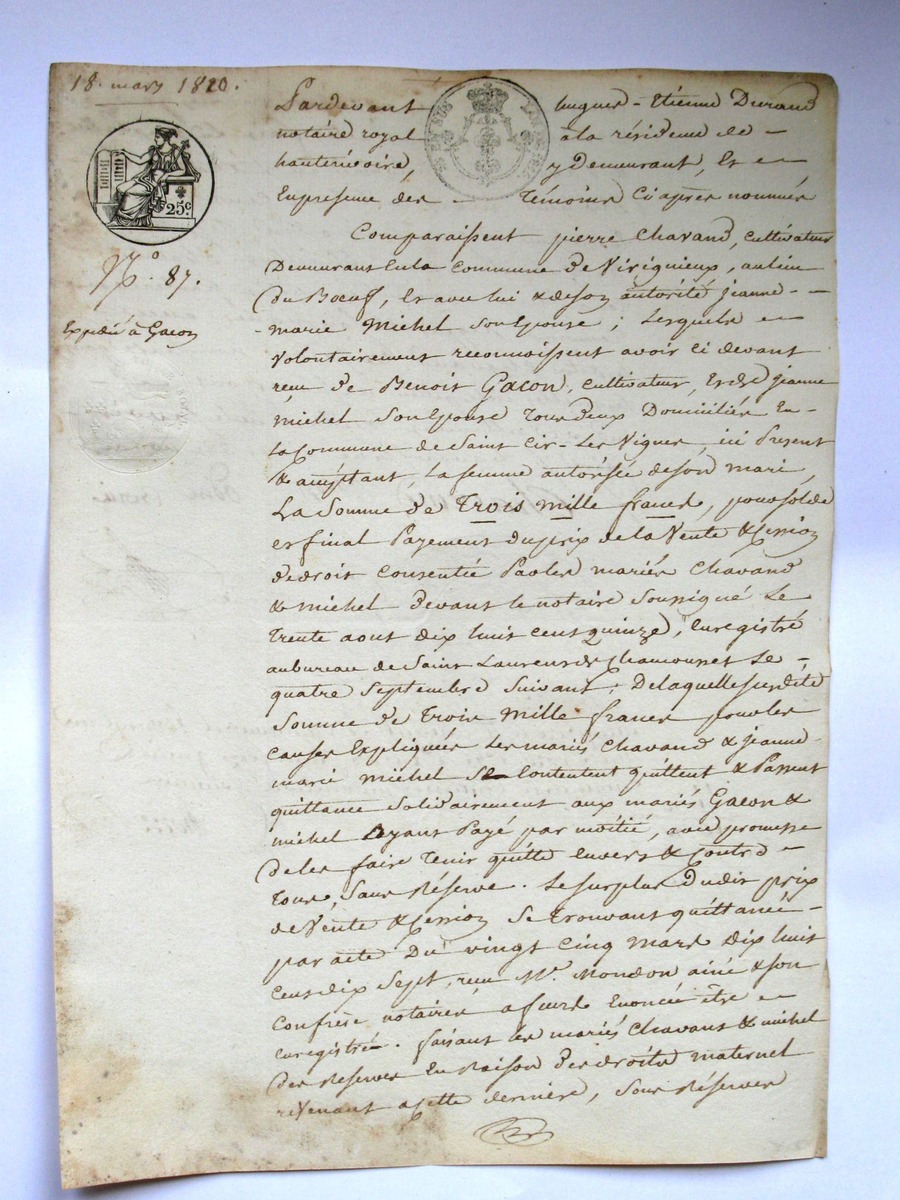 18. mars 1820.
Pardevant hugues-Etienne Durand
notaire royal à la résidence de -
hauterivoire, y Demeurant, Et -
En presence des - Témoins Ci après nommés
25c
Comparaissent pierre Chavand, cultivateur
Demeurant En la commune de Virignieux, au lieu
N.o 87.
du Boeuf, Et avec lui & de son autorité jeanne-
Expédié à Gacon
-marie Michel son Epouse; Lesquels -
Volontairement reconnoissent avoir ci devant
reçu de Benoit Gacon, cultivateur, Et de jeanne
Michel son Epouse tous deux Domiciliés En-
La Commune de Saint Cir-Les Vignes, ici Present
& acceptant, La femme autorisée de son mari,
La Somme de Trois mille francs, pour solde
et final Payement du prix de la Vente & Cession
de droit Consentie Par les mariés Chavand
& michel devant le notaire soussigné Le
Trente aout dix huit cent quinze, Enregistré
au bureau de Saint Laurent de Chamousset Le -
quatre septembre suivant; De laquelle susdite
Somme de Trois mille francs pour les
causes Expliquées Les mariés Chavand & jeanne-
marie michel se Contentent quittent & Passent
quittance solidairement aux mariés Gacon &
michel ayant Payé par moitié, avec promesse
de les faire tenir quitte Envers & Contre -
Tous, Sans Réserve. Le surplus dudit prix
de Vente & Cession se trouvant quittancé -
par acte Du vingt cinq mars dix huit
Cent dix Sept, reçu Me. Mondon ainé & son
Confrère notaires a feurs Enoncée être -
Enregistré. faisant les mariés Chavant & michel
des Réserves En Raison des droits maternel
revenant a cette dernière, sous Réserves